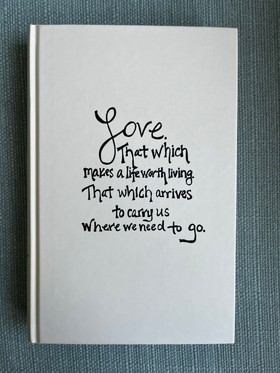 Love.
That which
makes a life worth living.
That which arrives
to carry us
where we need to go.